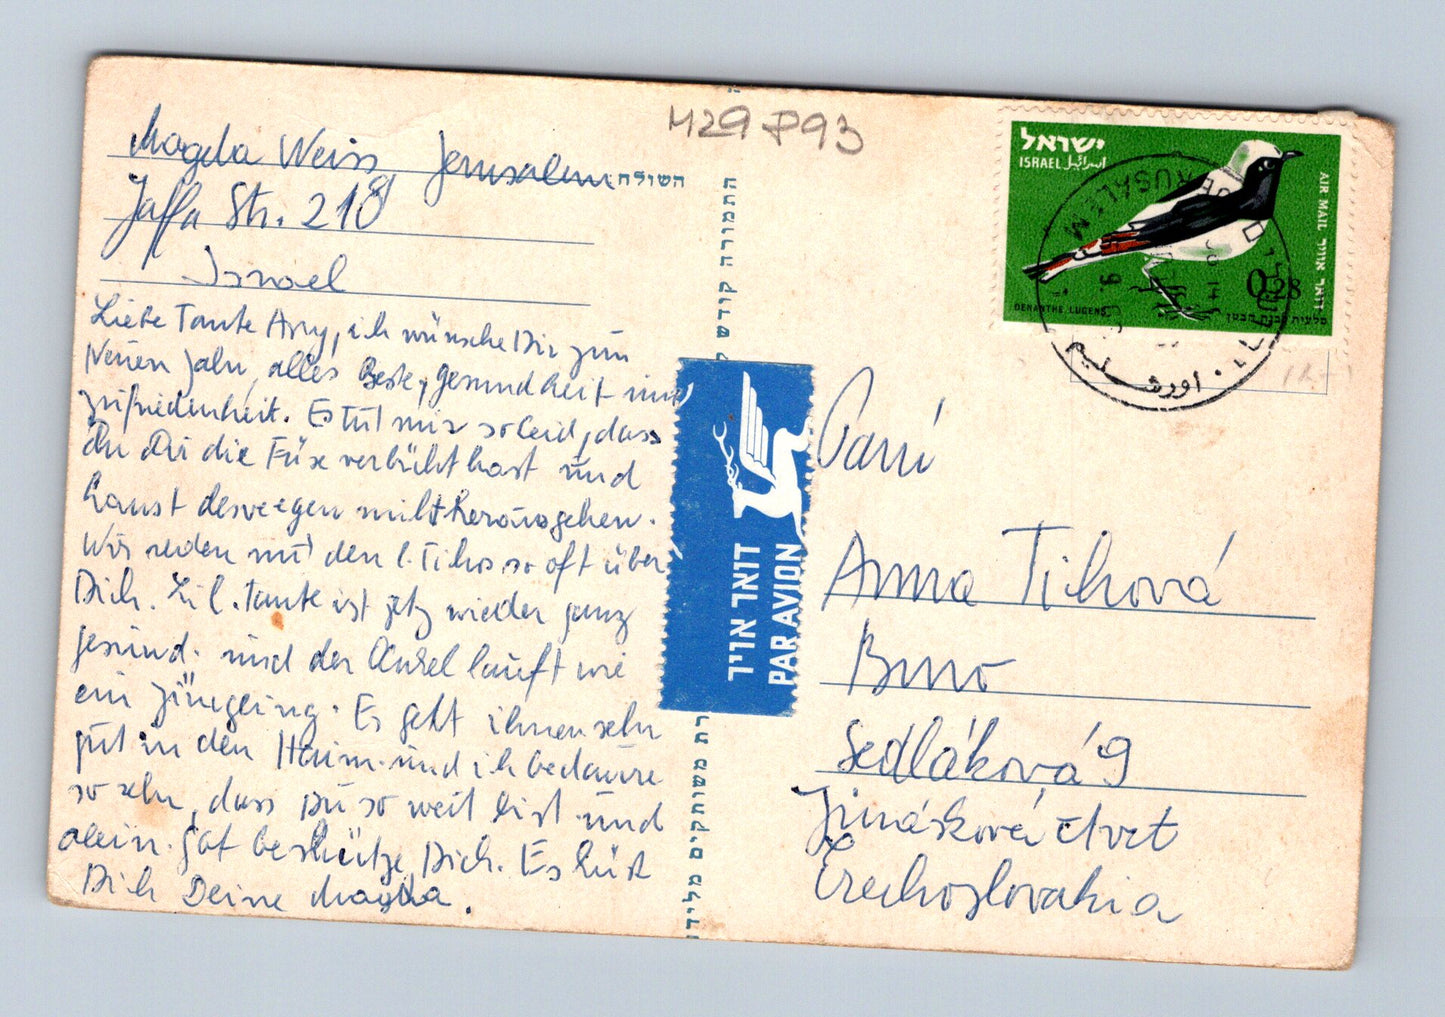 Magda Weiss, Jerusalem
השולח
Jaffa Str. 218
Israel
Liebe Tante Anny, ich wünsche Dir zum
Neuen Jahr, alles Beste, gesundheit und
zufriedenheit. Es tut mir so leid, dass
Du Dir die Füse verbüht hast und
kanst deswegen nicht herausgehen.
Wir reden mit den l. Tichos so oft über
Dich. Di l. Tante ist jetz wieder ganz
gesund. und der Onkel lauft wie
ein Jüngling. Es geht ihnen sehr
gut in den Heim. und ich bedaure
so sehr, dass Du so weit bist und
alein. Got beschütze Dich. Es küst
Dich Deine Magda.
M29 P93
דואר אויר
PAR AVION
ישראל
ISRAEL اسرائيل
AIR MAIL דואר אויר
0.28
OENANTHE LUGENS
סלעית שחורת הבטן
JERUSALEM
ירושלים
اورشليم
Paní
Anna Tichová
Brno
Sedláková 9
Jiráskova čtvrt
Czechoslovakia